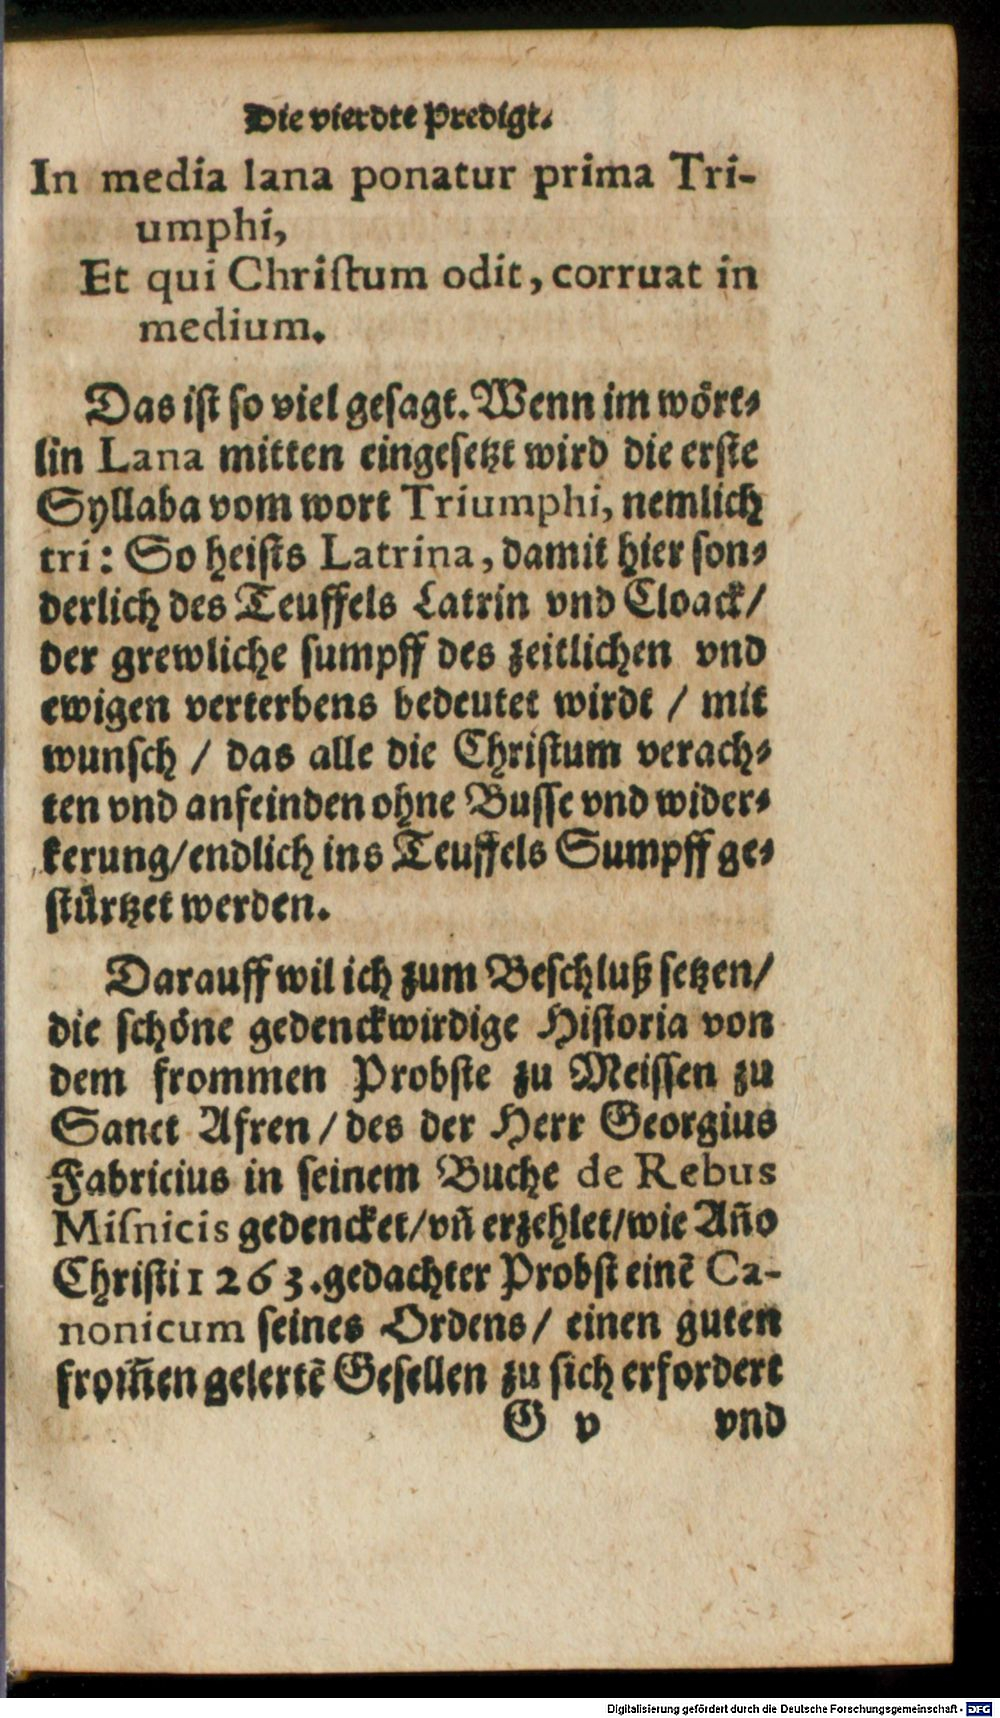 Die vierdte Predigt.
In media lana ponatur prima Tri-
umphi,
Et qui Chriſtum odit, corruat in
medium.
Das iſt ſo viel geſagt. Wenn im woͤrt⸗
lin Lana mitten eingeſetzt wird die erſte
Syllaba vom wort Triumphi, nemlich
tri: So heiſts Latrina, damit hier ſon⸗
derlich des Teuffels Latrin vnd Cloack/
der grewliche ſumpff des zeitlichen vnd
ewigen verterbens bedeutet wirdt / mit
wunſch / das alle die Chriſtum verach⸗
ten vnd anfeinden ohne Buſſe vnd wider⸗
kerung/endlich ins Teuffels Sumpff ge⸗
ſtuͤrtzet werden.
Darauff wil ich zum Beſchluß ſetzen/
die ſchoͤne gedenckwirdige Hiſtoria von
dem frommen Probſte zu Meiſſen zu
Sanct Afren / des der Herr Georgius
Fabricius in ſeinem Buche de Rebus
Miſnicis gedencket/vn̄ erzehlet/wie An̄o
Chriſti 1263. gedachter Probſt einē Ca-
nonicum ſeines Ordens/ einen guten
from̄en gelertē Geſellen zu ſich erfordert
G v vnd
Digitalisierung gefördert durch die Deutsche Forschungsgemeinschaft - DFG